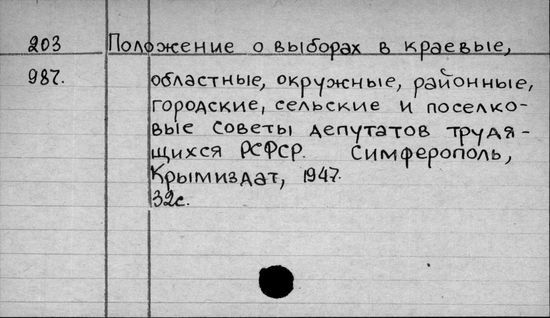 203 Положение о выборах в краевые,
987. областные, окружные, районные,
городские, сельские и поселко-
вые Советы депутатов трудя-
щихся РСФСР. Симферополь,
Крымиздат, 1947.
32с.